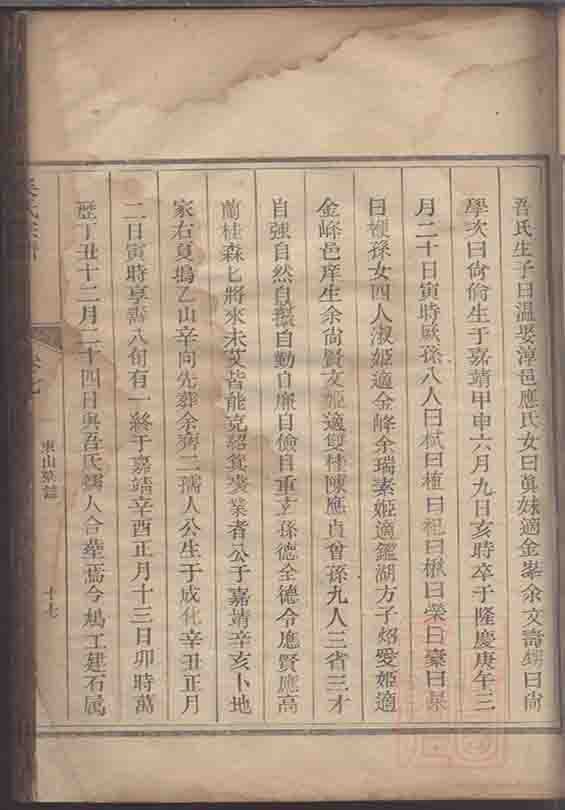 吾氏生子曰溫娶淳邑應氏女曰眞妹適金峯余文壽甥曰尙
學次曰尙倫生于嘉靖甲申六月九日亥時卒于隆慶庚午三
月二十日寅時厥孫八人曰栻曰植曰杞曰楸曰榮曰豪曰杲
曰稷孫女四人淑姬適金峰余瑞素姬適鑑湖方子炤愛姬適
金峰邑庠生余尙賢文姬適雙桂陳應貞曾孫九人三省三才
自强自然自發自勤自廉自儉自重玄孫德全德令應賢應高
蘭桂森匕將來未艾皆能克紹箕裘業者公于嘉靖辛亥卜地
家右夏塢乙山辛向先葬余齊二孺人公生于成化辛丑正月
二日寅時享壽八旬有一終于嘉靖辛酉正月十三日卯時萬
歷丁丑十二月二十四日與吾氏孺人合葬焉今鳩工建石属
吳氏宗譜
卷七
東山墓誌
十七